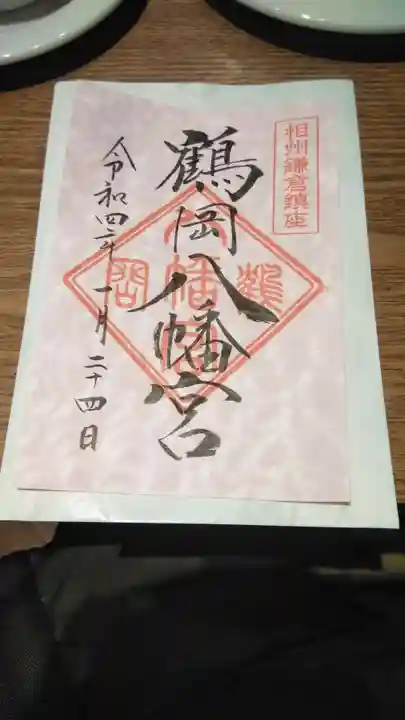 相州鎌倉鎮座
鶴岡八幡宮
令和四年一月二十四日
鶴
八幡宮
岡